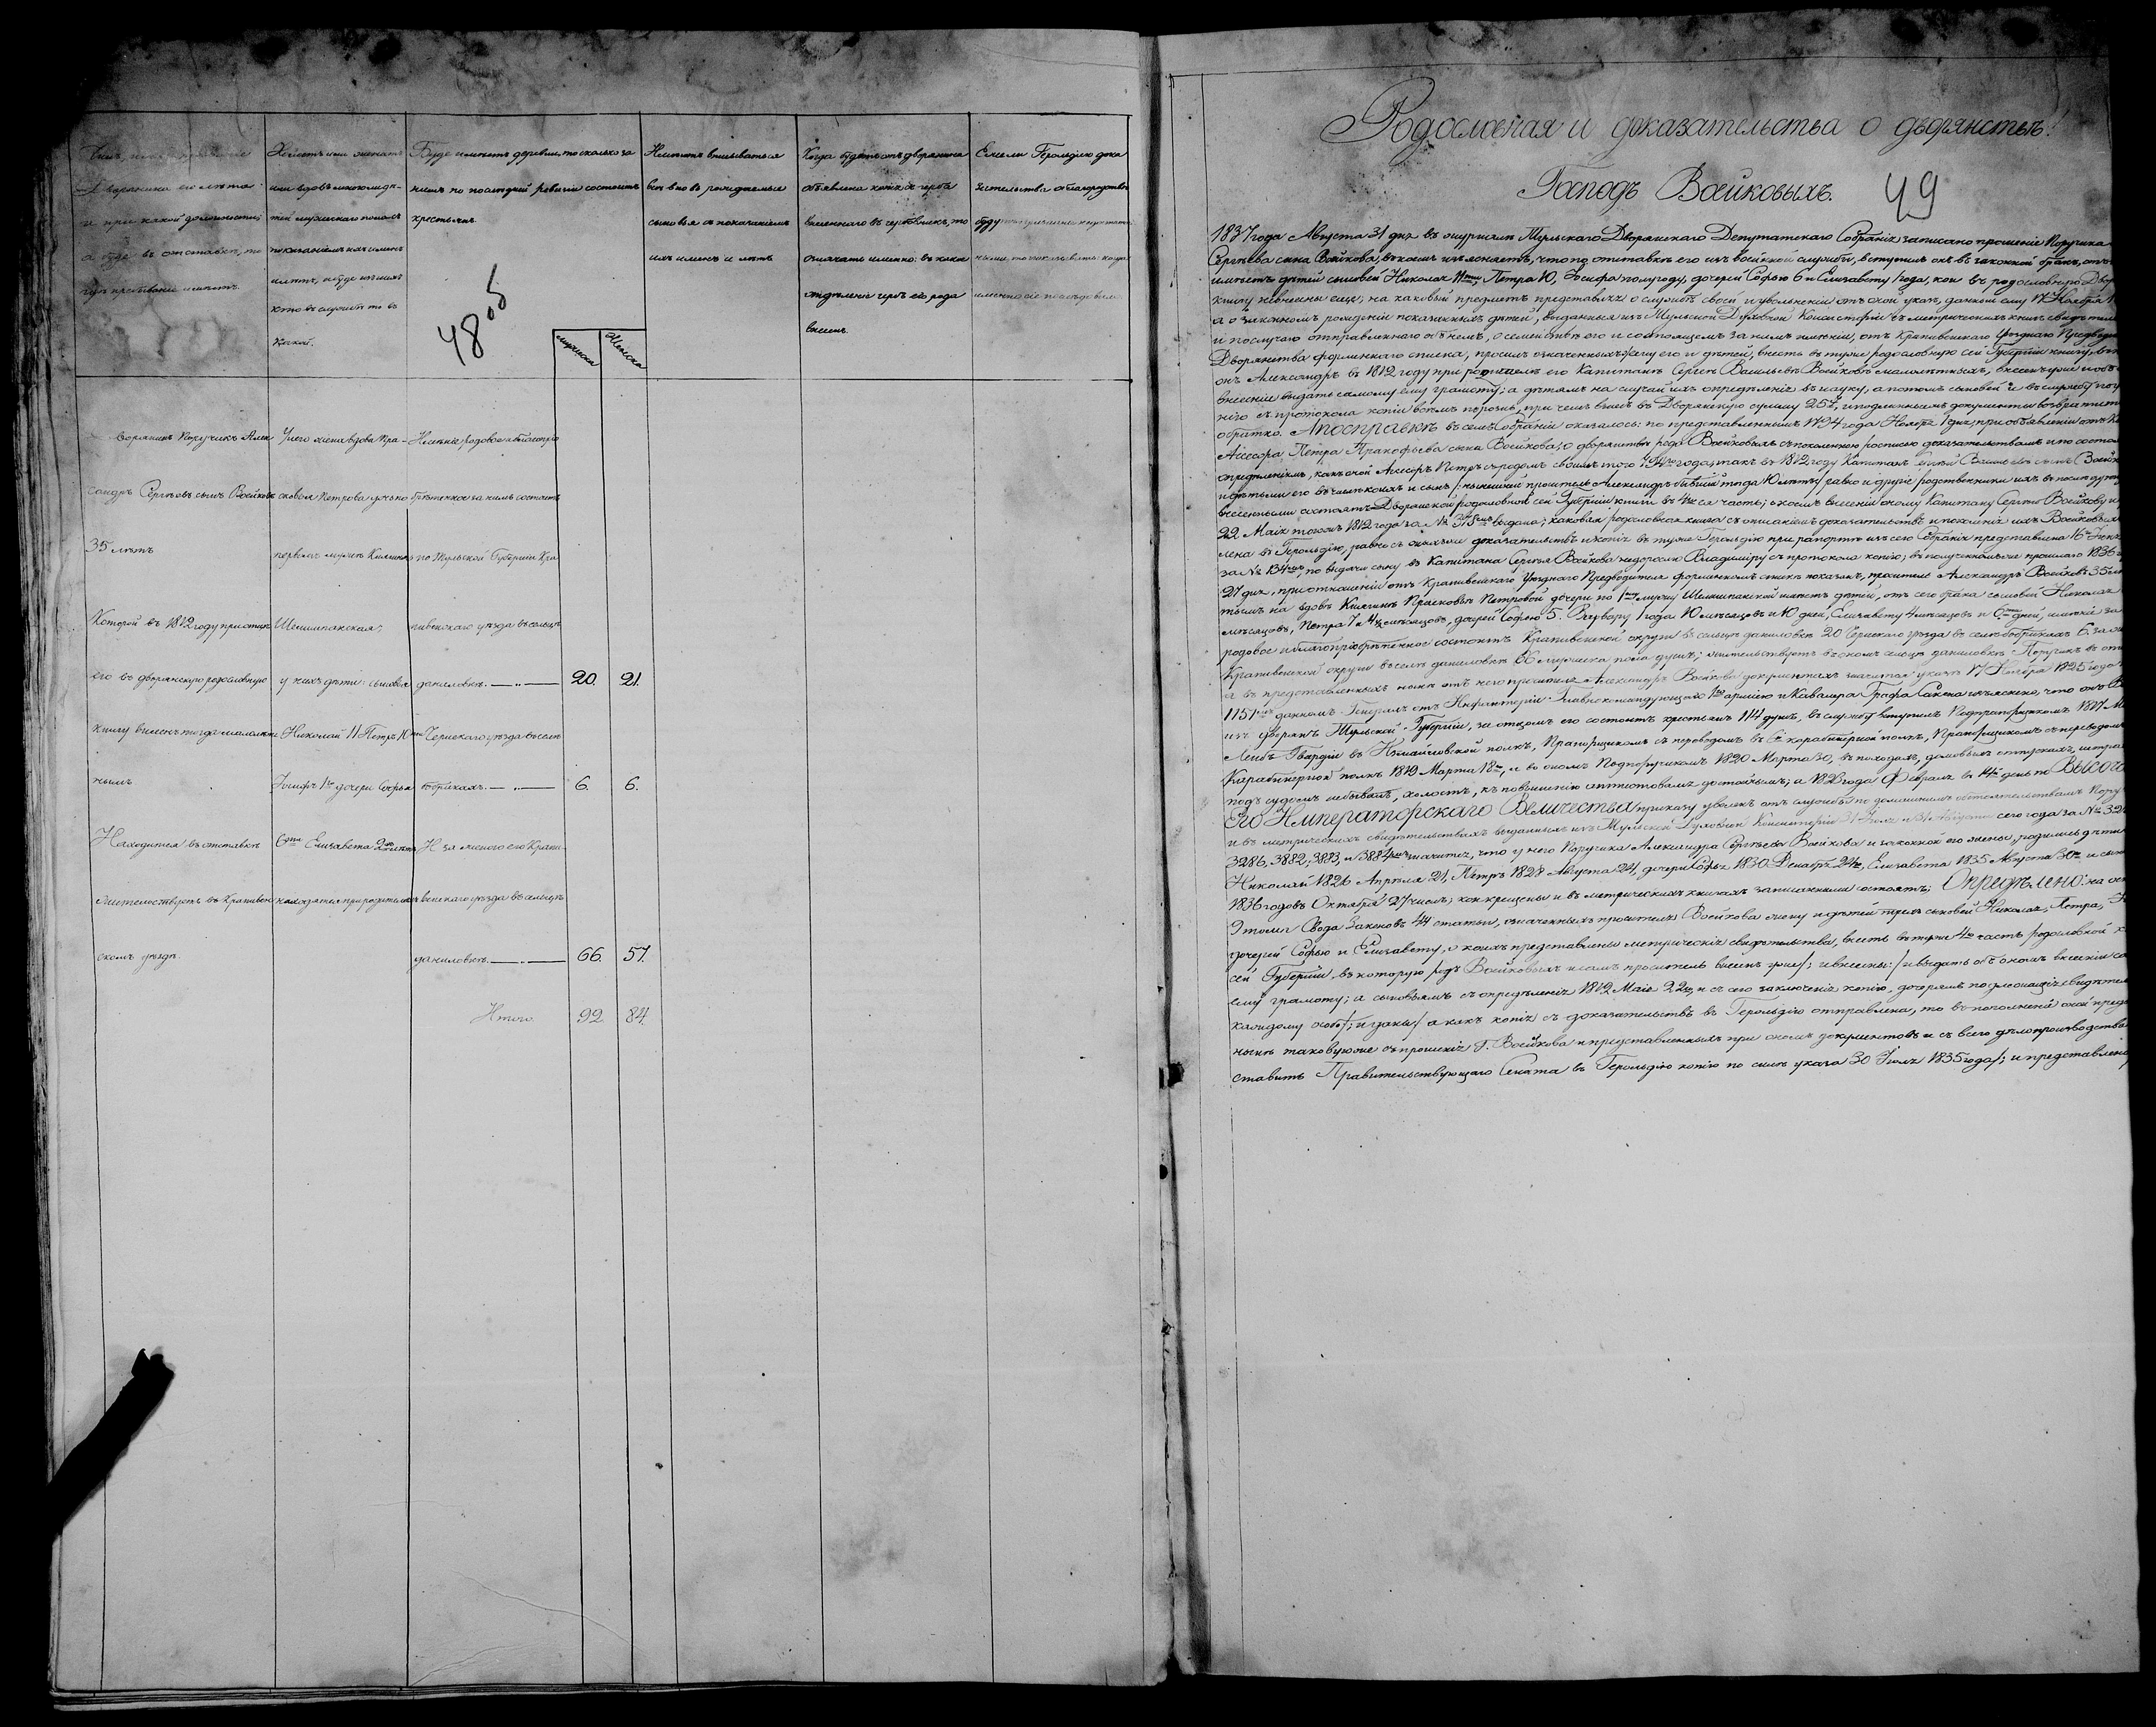 Дворянина его лѣта
и при какой должности,
а буде въ отставкѣ, то
гдѣ пребываніе имѣетъ.
Холостъ или женатъ
или вдовъ и сколько дѣ-
тей мужескаго пола съ
показаніемъ ихъ именъ
и лѣтъ, и буде изъ нихъ
кто въ службѣ то въ
какой.
Буде имѣетъ деревни, то сколько за
нимъ по послѣдней ревизіи состоитъ
крестьянъ.
48 об
мужеска
Женска
Имѣютъ вписываться
всѣ вновь рождаемые
сыновья съ показаніемъ
ихъ именъ и лѣтъ
Когда будетъ отъ дворянина
объявлена копія съ герба
внесеннаго въ гербовникъ, то
означать именно: въ какомъ
отдѣленіи гербъ его рода
внесенъ.
Ежели Герольдіею дока
зательства о благородствѣ
будутъ
Дворянинъ Поручикъ Алек
сандръ Сергѣевъ сынъ Воейковъ
35 лѣтъ
Которой въ 1812 году при отцѣ
его въ дворянскую родословную
книгу внесенъ тогда малолѣт
нымъ
Находится въ отставкѣ
Жительствуетъ въ Крапивен
скомъ уѣздѣ.
У него жена вдова Пра-
сковья Петрова дочь по
первомъ мужѣ Княгиня
Шелешпанская;
у нихъ дѣти: сыновья
Николай 11 Петръ 10
Іосифъ 1 дочери Софья
6 Елизавета 2 лѣтъ
находятся при родителяхъ
Имѣніе родовое и благопрі
обрѣтенное за нимъ состоитъ
по Тульской Губерніи Кра
пивенскаго уѣзда въ сельцѣ
даниловкѣ. 20. 21.
Чернскаго уѣзда въ селѣ
бобрикахъ. 6. 6.
И за женою его Крапи-
венскаго уѣзда въ сельцѣ
даниловкѣ. 66. 57.
Итого. 92 84.
Родословная и доказательства о дворянствѣ!
Господъ Воейковыхъ.
49
1837 года Августа 31 дня въ журналѣ Тульскаго Дворянскаго Депутатскаго Собранія записано прошеніе Поручика
Сергѣева сына Воейкова, въ коемъ изъясняетъ, что по отставкѣ его изъ военной службы, вступилъ онъ въ законной бракъ, отъ
имѣетъ дѣтей сыновей Николая 11, Петра 10, Іосифа полугоду, дочерей Софью 6 и Елизавету 1 года, кои въ родословную Двор
книгу не внесены еще; на каковый предметъ представляя о службѣ своей и увольненіи отъ оной указъ, данной ему 17 Ноября
а о законномъ рожденіи показанныхъ дѣтей, выданныя изъ Тульской Духовной Консисторіи съ метрическихъ книгъ свидѣтел
и послучаю отправленнаго объ немъ, о семействѣ его и состоящемъ за нимъ имѣніи, отъ Крапивенскаго Уѣзднаго Предводи
Дворянства формальнаго списка, просилъ означенныхъ жену его и дѣтей, внесть въ туже родословную сей Губерніи книгу,
онъ Александръ въ 1812 году при родителѣ его Капитанѣ Сергеѣ Васильевѣ Воейковѣ малолѣтныхъ, внесенъ уже и объ
внесеніи выдать самому ему грамоту; а дѣтямъ на случай ихъ опредѣленія въ науку, а потомъ сыновей и въ службу
него съ протокола копіи всѣмъ порознь, при чемъ внесъ въ Дворянскую сумму 25, и подлинныя документы возвратить
обратно. А по справкѣ въ семъ Собраніи оказалось: по представленнымъ 1794 года Ноября 1 дня, при объявленіи отъ
Асессора Петра Прокофьева сына Воейкова, о дворянствѣ рода Воейковыхъ съ поколенною росписью доказательствамъ и по состо
опредѣленіямъ, какъ оной Асесоръ Петръ съ родомъ своимъ того 794 года, такъ въ 1812 году Капитанъ Сергѣй Васильевъ сынъ Воейк
и дѣтьми его въ числѣ коихъ и сынъ /нынешней проситель Александръ бывшій тогда 10 лѣтъ/ равно и другіе родственники ихъ
внесенными состоятъ Дворянской родословной сей Губерніи книги въ 4 часть; о коемъ внесеніи оному Капитану Сергѣю Воейкову и
22 Маія тогожъ 1812 года за № 375 выдана; каковая родословная книга съ описаніемъ доказательствъ и поколенія ихъ Воейковыхъ
лена въ Герольдію, равно съ оныхъ доказательствъ и копіи въ туже Герольдію при рапортѣ изъ сего Собранія представлена 16
за № 134, по выдачи сыну въ Капитана Сергѣя Воейкова недорослю Владиміру съ протокола копію; въ полученномъ прошлаго 1836
27 дня, при отношеніи отъ Крапивенскаго Уѣзднаго Предводителя формальномъ спискѣ показанъ, проситель Александръ Воейковъ 35
тымъ на вдовѣ Княгинѣ Прасковьѣ Петровой дочери по 1 мужу Шелешпанской имѣетъ дѣтей, отъ сего брака сыновей Николая
мѣсяцовъ, Петра 7 и 4 мѣсяцовъ, дочерей Софью 5. Варвару 1 года 10 мѣсяцовъ и 10 дней, Елизавету 4 мѣсяцовъ и 6 дней, имѣніе за
родовое и благопріобрѣтенное состоитъ Крапивенской округи въ сельцѣ даниловкѣ 20 Чернскаго уѣзда въ селѣ бобрикахъ 6. за
Крапивенской округи въ селѣ даниловкѣ 66 мужеска пола душъ; жительствуетъ въ ономъ сельцѣ даниловкѣ Поручикъ въ от
а въ представленныхъ нынѣ отъ него просителя Александра Воейкова документахъ значится указъ 17 Ноября 1825 года
1151 данномъ Генералъ отъ Инфантеріи Главнокомандующаго 1 арміею и Кавалера Графа Сакена изъяснено, что онъ
изъ дворянъ Тульской Губерніи, за отцомъ его состоитъ крестьянъ 114 душъ, въ службу вступилъ Подпрапорщикомъ
Лейбъ Гвардіи въ Измайловской полкъ, Прапорщикомъ съ переводомъ въ карабинерной полкъ, Прапорщикомъ съ переводомъ
Карабинерной полкъ 1819 Марта 18, и во ономъ Подпоручикомъ 1820 Марта 30, въ походахъ, домовыхъ отпускахъ, штра
подъ судомъ небывалъ, холостъ, къ повышенію аттестовался достойнымъ; а 1823 года Февраля въ 14 день по Высоча
Его Императорскаго Величества приказу уволенъ отъ службы по домашнимъ обстоятельствамъ Пору
и въ метрическихъ свидѣтельствахъ выданныхъ изъ Тульской Духовной Консисторіи 31 Іюля и 31 Августа сего года за №
3286, 3882, 3883, и 3884 значится, что у него Поручика Александра Сергѣева Воейкова и законной его жены, родились дѣти
Николай 1826 Апрѣля 21, Петръ 1828 Августа 24, дочери Софья 1830 Декабря 24, Елизавета 1835 Августа 30 и сын
1836 годовъ Октября 27 числъ; кои крещены и въ метрическихъ книгахъ записанными состоятъ; Опредѣлено: на ос
9 тома Свода Законовъ 44 статьи, означенныхъ просителя Воейкова жену и дѣтей трехъ сыновей Николая, Петра,
дочерей Софью и Елизавету, о коихъ представлены метрическія свидѣтельства, внесть въ туже 4 часть родословной
сей Губерніи, въ которую родъ Воейковыхъ и самъ проситель внесенъ уже/; и внесены:/ и выдать объ ономъ внесеніи са
ему грамоту; а сыновьямъ съ опредѣленія 1812 Маія 22 и съ сего заключенія копію, дочерямъ подлежащія свидѣтел
каждому особо/; и даны:/ а какъ копія съ доказательствъ въ Герольдію отправлена, то въ пополненіи оной предо
нынѣ таковую же съ прошенія Г. Воейкова и представленныхъ при ономъ документовъ и съ всего дѣлопроизводства
ставить Правительствующаго Сената въ Герольдію копію по силѣ указа 30 Іюля 1835 года/; и представлено